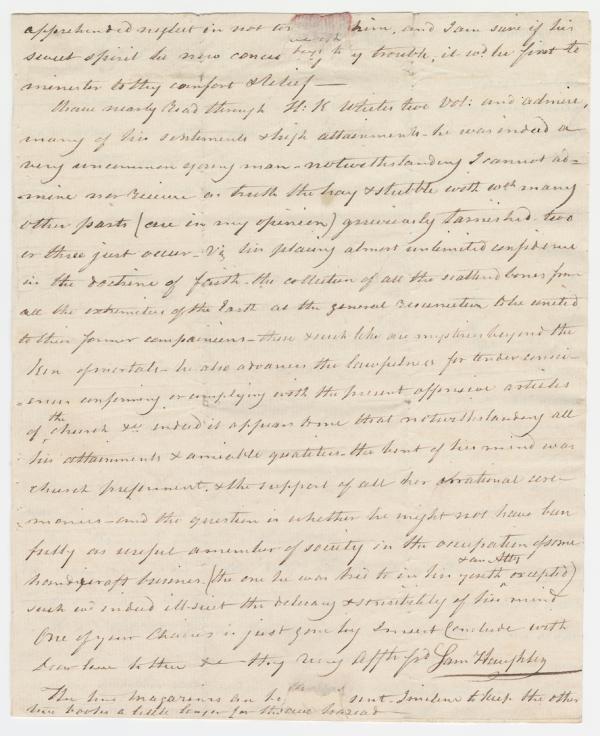 apprehended neglect in not him, and I am sure if his
sweet spirit be now trouble, it wd. be first to
minister to thy comfort & relief —
I have nearly read through H: K Whites two Vol: and admire
many of his sentiments & high attainments - he was indeed a
very uncommon young man - notwithstanding I cannot ad-
-mire nor receive as truth the hay & stubble with wch. many
other parts (are in my opinion) grieviously tarnished. two
or three just occur - Viz his placing almost unlimited confidence
in the doctrine of faith - the collection of all the scattered bones from
all the extremities of the Earth at the general resurrection to be united
to their former companions - these & such like are mysteries beyond the
ken of mortals - he also advances the lawfulness for tender consci-
-ences confirming or complying with the present offensive articles
of the church &c indeed it appears to me that notwithstanding all
his attainments & amiable qualities - the bent of his mind was
church preferment. & the support of all her irrational cere-
monies - and the question is whether he might not have been
fully as useful a member of society in the occupation of some
handycraft business (the one he was tried to in his youth & an Atty excepted)
such wd indeed ill-suit the delicacy & sensibility of his mind
One of your Chaises is just gone by I must Conclude with
Dear love to thee &c thy very affte frd Saml Haughton
The two magazines are sent - I incline to keep the other
two books a little longer for